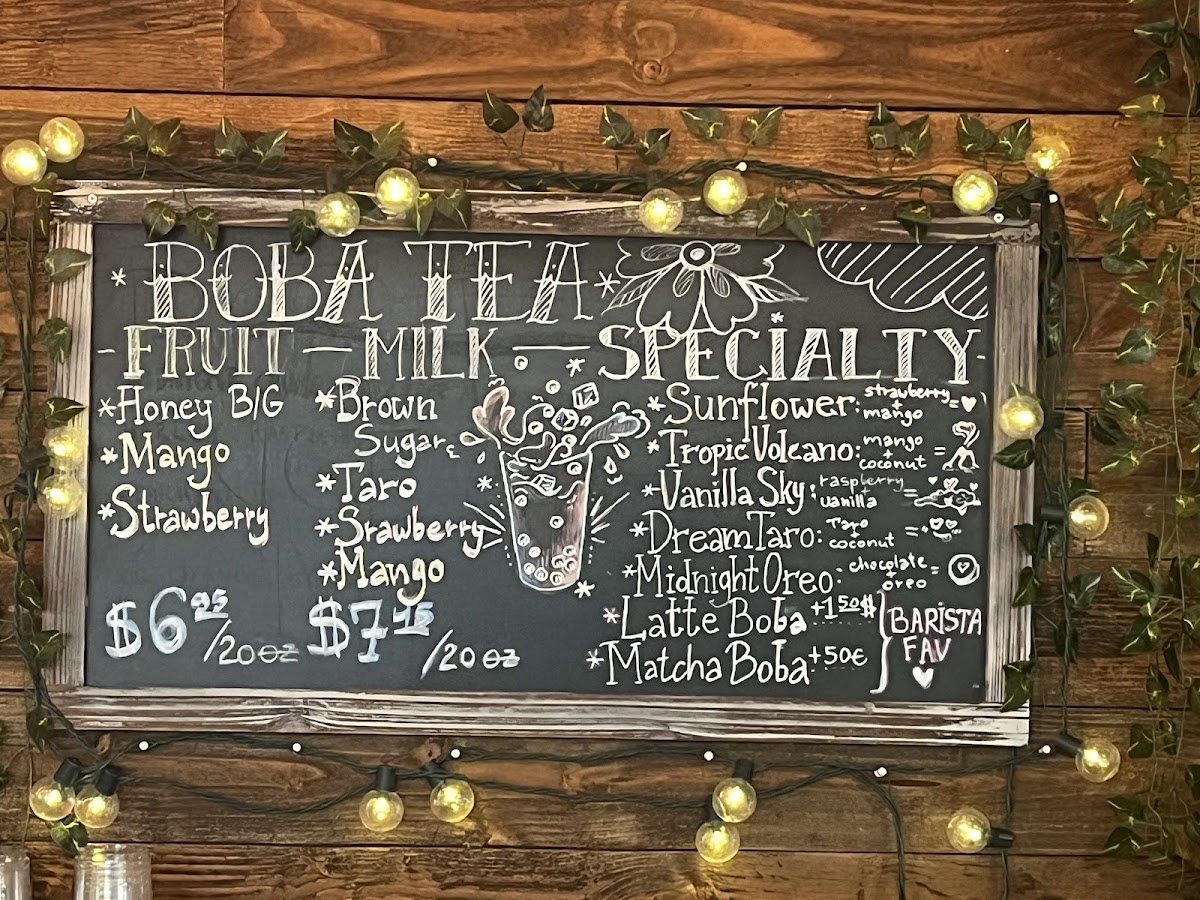 * BOBA TEA *
- FRUIT — MILK —
*Honey B/G
*Mango
*Strawberry
$6 95 /20 oz
*Brown
Sugar
*Taro
*Srawberry
*Mango
$7 45 /20 oz
SPECIALTY -
*Sunflower: strawberry + mango = ♥
*Tropic Volcano: mango + coconut =
*Vanilla Sky: raspberry + vanilla =
*Dream Taro: Taro + coconut =
*Midnight Oreo: chocolate + oreo =
*Latte Boba +1 50 $
*Matcha Boba +50¢
BARISTA
FAV
♥